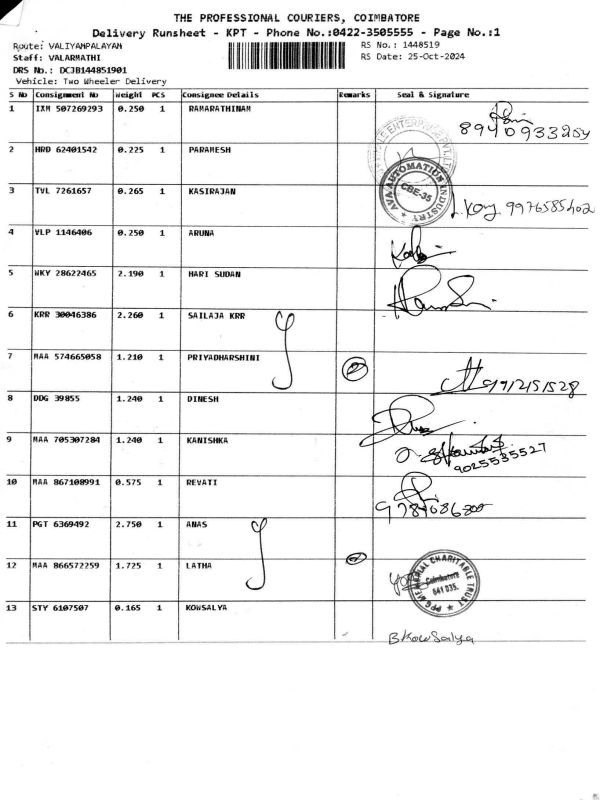 THE PROFESSIONAL COURIERS, COIMBATORE
Delivery Runsheet - KPT - Phone No.:0422-3505555 - Page No.:1
Route: VALIYAMPALAYAM RS No.: 1448519
Staff: VALARMATHI RS Date: 25-Oct-2024
DRS No.: DCJB144851901
Vehicle: Two Wheeler Delivery
S No Consignment No Weight PCS Consignee Details Remarks Seal & Signature
1 IXM 507269293 0.250 1 RAMARATHINAM
2 HRD 62401542 0.225 1 PARAMESH
AVA AUTOMATION INDUSTRY CBE-35
3 TVL 7261657 0.265 1 KASIRAJAN 9976585402
4 VLP 1146406 0.250 1 ARUNA
5 WKY 28622465 2.190 1 HARI SUDAN
6 KRR 30046386 2.260 1 SAILAJA KRR
7 MAA 574665058 1.210 1 PRIYADHARSHINI 2
8 DDG 39855 1.240 1 DINESH
9 MAA 705307284 1.240 1 KANISHKA
9025535527
10 MAA 867108991 0.575 1 REVATI
11 PGT 6369492 2.750 1 ANAS
12 MAA 866572259 1.725 1 LATHA 2
PPG MEMORIAL CHARITABLE TRUST Coimbatore 641 035.
13 STY 6107507 0.165 1 KOWSALYA
B.Kowsalya